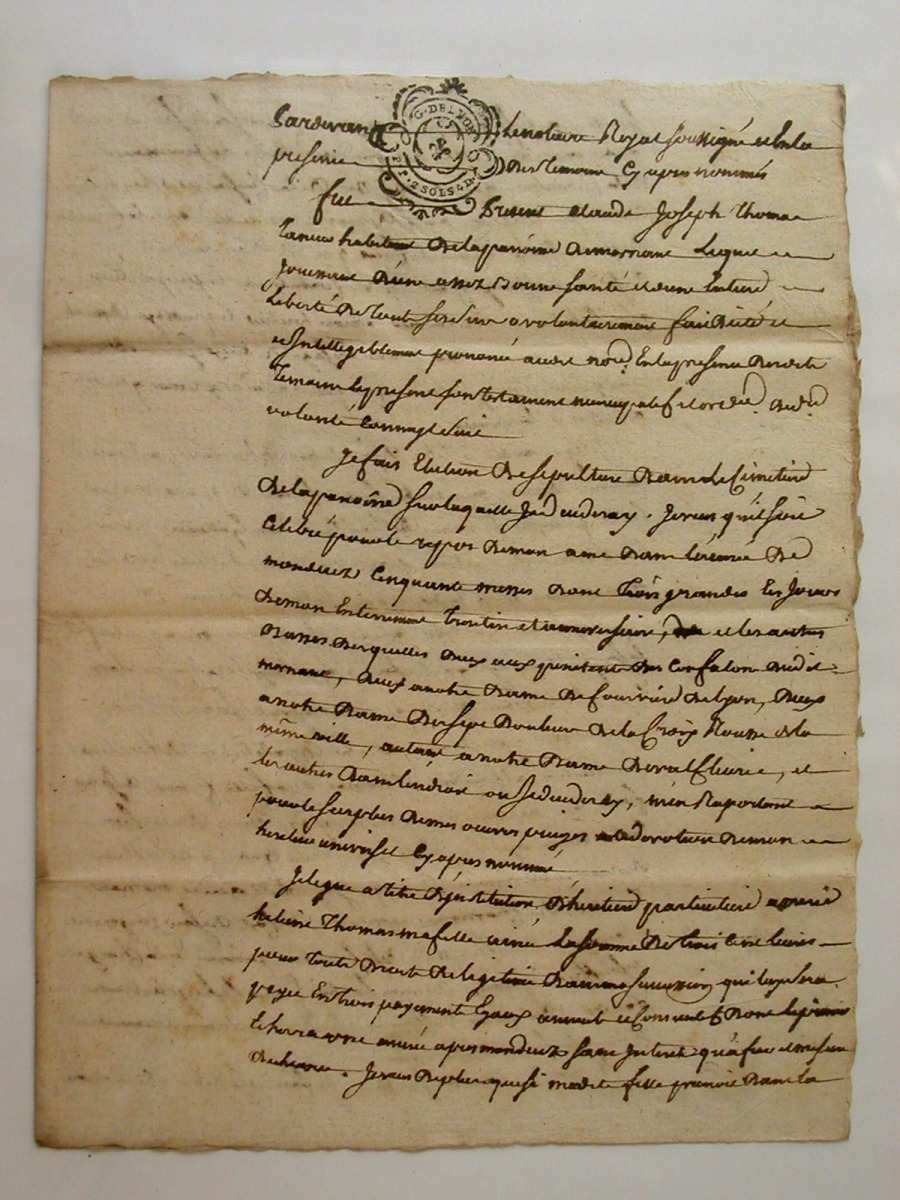 Pardevant Le notaire Royal soussigné et En la
presence des temoins Cy apres nommés
fut Present Claude Joseph Thomas
habitant de la paroisse de mornant Lequel
Jouissant d'une assez Bonne santé et d'une Entiere
Liberté de tout ses sens a volontairement fait dicté et
et Intelligiblement prononcé audit no.re En la presence desdits
Temoins le present son testament nuncupatif et ord.re de d.re
volonté Comme s'suit
Je fais Election de sepulture Dans le Cimetiere
De la paroisse sur laquelle Je decederay. Je veux qu'il soit
Celebré pour le repos de mon ame Dans l'année de
mon decez Cinquante messes dont trois grandes les Jours
De mon Enterrement trentin et anniversaire, et les autres
Basses desquelles deux aux penitents du Confalon dudit
mornant, deux a notre Dame de fourviere de Lyon, deux
a notre Dame des sept Douleurs de la Croix Rousse de la
même ville, autant a notre Dame de valfleurie, et
les autres Dans l'endroit ou Je decederay, m'en Raportant
pour le surplus de mes oeuvres pieuses a la devotion de mon
heritier universel Cy apres nommé
Je legue a titre d'Institution d'heritiere particuliere a marie
helene Thomas ma fille ainée La somme de trois Cent livres
pour touts Droits de legitime Dans ma succession qui luy sera
payée En trois payements Egaux annuels et Consecutifs Dont le premier
Echerra une année apres mon decez sans Interet qu'a fur et mesure
d'echeance. Je veux de plus que si madite fille prenoit Dans la